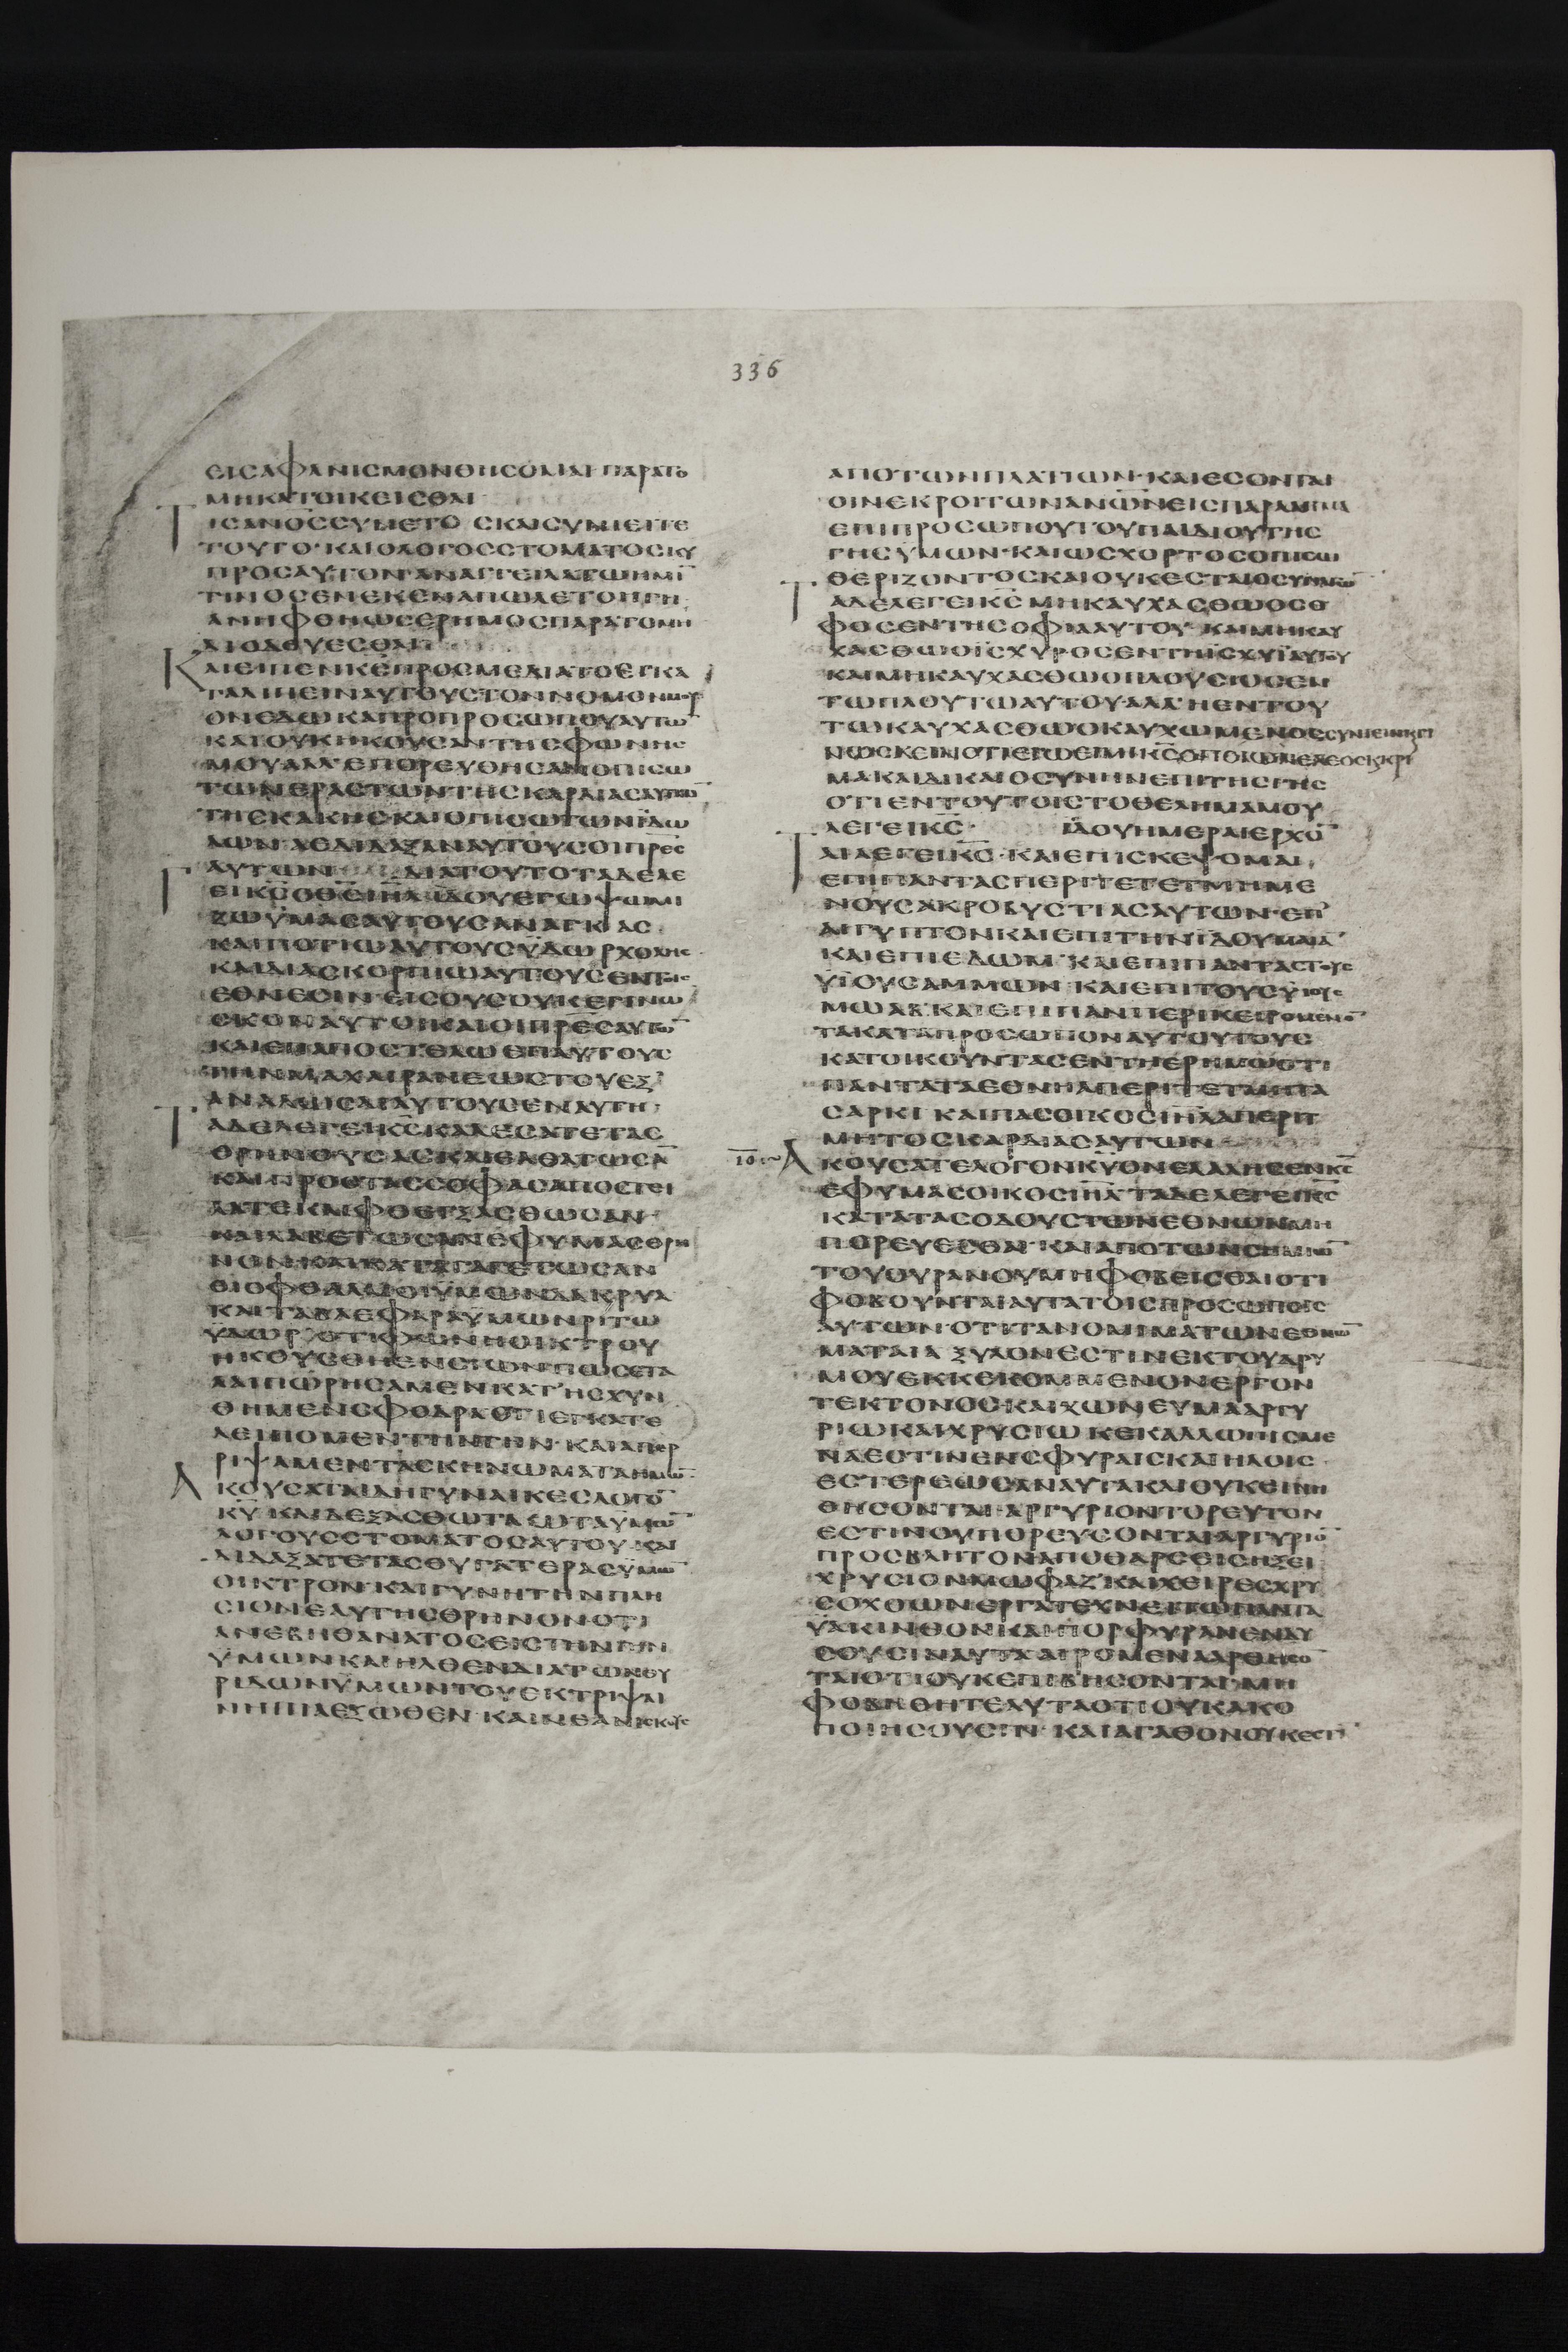 336
ΕΙСΑΦΑΝΙСΜΟΝΘΗСΟΜΑΙ ΠΑΡΑΤΟ
ΜΗΚΑΤΟΙΚΕΙСΘΑΙ
ΤΙСΑΝΟССΥΝΕΤΟ СΚΑΙСΥΝΙΕΤΕ
ΤΟΥΤΟ· ΚΑΙΟΛΟΓΟССΤΟΜΑΤΟСΚΥ
ΠΡΟСΑΥΤΟΝ·ΑΝΑΓΓΕΙΛΑΤΩΗΜΙ̅
ΤΙΝΟСΕΝΕΚΕΝΑΠΩΛΕΤΟΗΓΗ·
ΑΝΗΦΘΗΩСΕΡΗΜΟСΠΑΡΑΤΟΜΗ
ΔΙΟΔΕΥΕСΘΑΙ·
ΚΑΙΕΙΠΕΝΚ̅С̅ΠΡΟСΜΕΔΙΑΤΟΕΓΚΑ
ΤΑΛΙΠΕΙΝΑΥΤΟΥСΤΟΝΝΟΜΟΝΜΟΥ
ΟΝΕΔΩΚΑΠΡΟΠΡΟСΩΠΟΥΑΥΤΩ̅
ΚΑΙΟΥΚΗΚΟΥСΑΝΤΗСΦΩΝΗС
ΜΟΥΑΛΛ'ΕΠΟΡΕΥΘΗСΑΝΟΠΙСΩ
ΤΩΝΕΡΑСΤΩΝΤΗСΚΑΡΔΙΑСΑΥΤΩ̅
ΤΗСΚΑΚΗСΚΑΙΟΠΙСΩΤΩΝΕΙΔΩ
ΛΩΝ·ΑΕΔΙΔΑΞΑΝΑΥΤΟΥСΟΙΠΡ̅Ε̅С̅
ΑΥΤΩΝ ΔΙΑΤΟΥΤΟΤΑΔΕΛΕ
ΓΕΙΚ̅С̅ΟΘ̅С̅Ι̅Η̅Λ̅ΙΔΟΥΕΓΩΨΩΜΙ
ΖΩΫΜΑСΑΥΤΟΥСΑΝΑΓΚΑС·
ΚΑΙΠΟΤΙΩΑΥΤΟΥСΫΔΩΡΧΟΛΗС·
ΚΑΙΔΙΑСΚΟΡΠΙΩΑΥΤΟΥСΕΝΤΟΙС
ΕΘΝΕСΙΝ·ΕΙСΟΥСΟΥΚΕΓΙΝΩ
СΚΟΝΑΥΤΟΙΚΑΙΟΙΠΡ̅Ε̅С̅ΑΥΤΩ̅
ΚΑΙΕΠΑΠΟСΤΕΛΩΕΠΑΥΤΟΥС
ΤΗΝΜΑΧΑΙΡΑΝΕΩСΤΟΥΕΞ
ΑΝΑΛΩСΑΙΑΥΤΟΥСΕΝΑΥΤΗ·
ΤΑΔΕΛΕΓΕΙΚ̅С̅ΚΑΛΕСΑΤΕΤΑС
ΘΡΗΝΟΥСΑСΚΑΙΕΛΘΑΤΩСΑ̅
ΚΑΙΠΡΟСΤΑССΟΦΑСΑΠΟСΤΕΙ
ΛΑΤΕΚΑΙΦΘΕΓΞΑСΘΩСΑΝ·
ΚΑΙΛΑΒΕΤΩСΑΝΕΦΥΜΑСΘΡΗ
ΝΟΝ·ΚΑΙΚΑΤΑΓΑΓΕΤΩСΑΝ
ΟΙΟΦΘΑΛΜΟΙΫΜΩΝΔΑΚΡΥΑ
ΚΑΙΤΑΒΛΕΦΑΡΑΫΜΩΝΡΙΤΩ
ΫΔΩΡ·ΟΤΙΦΩΝΗΟΙΚΤΡΟΥ
ΗΚΟΥСΘΗΕΝСΙΩΝΠΩСΕΤΑ
ΛΑΙΠΩΡΗСΑΜΕΝΚΑΤΗСΧΥΝ
ΘΗΜΕΝСΦΟΔΡΑ·ΟΤΙΕΓΚΑΤΕ
ΛΕΙΠΟΜΕΝΤΗΝΓΗΝ·ΚΑΙΑΠΕΡ
ΡΙΨΑΜΕΝΤΑСΚΗΝΩΜΑΤΑΗΜΩ̅
ΑΚΟΥСΑΤΑΙΔΗΓΥΝΑΙΚΕСΛΟΓΟ̅
Κ̅Υ̅·ΚΑΙΔΕΞΑСΘΩΤΑΩΤΑΥΜΩ̅
ΛΟΓΟΥССΤΟΜΑΤΟСΑΥΤΟΥ·ΚΑΙ
ΔΙΔΑΞΑΤΕΤΑСΘΥΓΑΤΕΡΑСΫΜΩ̅
ΟΙΚΤΡΟΝ·ΚΑΙΓΥΝΗΤΗΝΠΛΗ
СΙΟΝΕΑΥΤΗСΘΡΗΝΟΝΟΤΙ
ΑΝΕΒΗΘΑΝΑΤΟСΕΙСΤΗΝΓΗΝ
ΫΜΩΝΚΑΙΗΛΘΕΝΔΙΑΤΩΝΘΥ
ΡΙΔΩΝΫΜΩΝΤΟΥΕΚΤΡΙΨΑΙ
ΝΗΠΙΑΕΞΩΘΕΝ·ΚΑΙΝΕΑΝΙСΚΟΥС
ΑΠΟΤΩΝΠΛΑΤΙΩΝ·ΚΑΙΕСΟΝΤΑΙ
ΟΙΝΕΚΡΟΙΤΩΝΑΝΩ̅ΝΕΙСΠΑΡΑΔΙΓΜΑ
ΕΠΙΠΡΟСΩΠΟΥΤΟΥΠΑΙΔΙΟΥΤΗС
ΓΗСΥΜΩΝ·ΚΑΙΩСΧΟΡΤΟСΟΠΙСΩ
ΘΕΡΙΖΟΝΤΟСΚΑΙΟΥΚΕСΤΑΙΟСΥΝΑΓΩ̅
ΤΑΔΕΛΕΓΕΙΚ̅С̅ΜΗΚΑΥΧΑСΘΩΟСΟ
ΦΟСΕΝΤΗСΟΦΙΑΑΥΤΟΥ·ΚΑΙΜΗΚΑΥ
ΧΑСΘΩΟΙСΧΥΡΟСΕΝΤΗΙСΧΥΙΑΥΤΟΥ
ΚΑΙΜΗΚΑΥΧΑСΘΩΟΠΛΟΥСΙΟСΕΝ
ΤΩΠΛΟΥΤΩΑΥΤΟΥ·ΑΛΛ'ΗΕΝΤΟΥ
ΤΩΚΑΥΧΑСΘΩΟΚΑΥΧΩΜΕΝΟССΥΝΙΕΙΝΚΑΙΓΙ
ΝΩСΚΕΙΝΟΤΙΕΓΩΕΙΜΙΚ̅С̅ΟΠΟΙΩΝΕΛΕΟСΚΑΙΚΡΙ
ΜΑΚΑΙΔΙΚΑΙΟСΥΝΗΝΕΠΙΤΗСΓΗС
ΟΤΙΕΝΤΟΥΤΟΙСΤΟΘΕΛΗΜΑΜΟΥ
ΛΕΓΕΙΚ̅С̅· ΙΔΟΥΗΜΕΡΑΙΕΡΧΟ̅
ΤΑΙΛΕΓΕΙΚ̅С̅·ΚΑΙΕΠΙСΚΕΨΟΜΑΙ
ΕΠΙΠΑΝΤΑСΠΕΡΙΤΕΤΕΤΜΗΜΕ
ΝΟΥСΑΚΡΟΒΥСΤΙΑСΑΥΤΩΝ·ΕΠ'
ΑΙΓΥΠΤΟΝΚΑΙΕΠΙΤΗΝΙΔΟΥΜΑΙΑ̅
ΚΑΙΕΠΙΕΔΩΜ·ΚΑΙΕΠΙΠΑΝΤΑСΤΟΥС
ΥΙΟΥСΑΜΜΩΝ·ΚΑΙΕΠΙΤΟΥСΥΙΟΥС
ΜΩΑΒ·ΚΑΙΕΠΙΠΑΝΠΕΡΙΚΕΙΡΟΜΕΝΟ̅
ΤΑΚΑΤΑΠΡΟСΩΠΟΝΑΥΤΟΥΤΟΥС
ΚΑΤΟΙΚΟΥΝΤΑСΕΝΤΗΕΡΗΜΩΟΤΙ
ΠΑΝΤΑΤΑΕΘΝΗΑΠΕΡΙΤΕΤΜΗΤΑ
СΑΡΚΙ ΚΑΙΠΑСΟΙΚΟСΙ̅Η̅Λ̅ΑΠΕΡΙΤ
ΜΗΤΟСΚΑΡΔΙΑСΑΥΤΩΝ
ΑΚΟΥСΑΤΕΛΟΓΟΝΚ̅Υ̅ΟΝΕΛΑΛΗСΕΝΚ̅С̅
ΕΦΥΜΑСΟΙΚΟСΙ̅Η̅Λ̅·ΤΑΔΕΛΕΓΕΙΚ̅С̅
ΚΑΤΑΤΑСΟΔΟΥСΤΩΝΕΘΝΩΝΜΗ
ΠΟΡΕΥΕСΘΑΙ·ΚΑΙΑΠΟΤΩΝСΗΜΙΩ̅
ΤΟΥΟΥΡΑΝΟΥΜΗΦΟΒΕΙСΘΑΙΟΤΙ
ΦΟΒΟΥΝΤΑΙΑΥΤΑΤΟΙСΠΡΟСΩΠΟΙС
ΑΥΤΩΝ·ΟΤΙΤΑΝΟΜΙΜΑΤΩΝΕΘΝΩ̅
ΜΑΤΑΙΑ ΞΥΛΟΝΕСΤΙΝΕΚΤΟΥΔΡΥ
ΜΟΥΕΚΚΕΚΟΜΜΕΝΟΝΕΡΓΟΝ
ΤΕΚΤΟΝΟС·ΚΑΙΧΩΝΕΥΜΑΑΡΓΥ
ΡΙΩΚΑΙΧΡΥСΙΩΚΕΚΑΛΛΩΠΙСΜΕ
ΝΑΕСΤΙΝΕΝСΦΥΡΑΙСΚΑΙΗΛΟΙС
ΕСΤΕΡΕΩСΑΝΑΥΤΑΚΑΙΟΥΚΕΙΝΗ
ΘΗСΟΝΤΑΙ·ΑΡΓΥΡΙΟΝΤΟΡΕΥΤΟΝ
ΕСΤΙΝΟΥΠΟΡΕΥСΟΝΤΑΙΑΡΓΥΡΙΟ̅
ΠΡΟСΒΛΗΤΟΝΑΠΟΘΑΡСΕΙСΗΞΕΙ
ΧΡΥСΙΟΝΜΩΦΑΖ'ΚΑΙΧΕΙΡΕСΧΡΥ
СΟΧΟΩΝΕΡΓΑΤΕΧΝΕΙΤΩΝΠΑΝΤΑ
ΫΑΚΙΝΘΟΝΚΑΙΠΟΡΦΥΡΑΝΕΝΔΥ
СΟΥСΙΝΑΥΤΑΑΙΡΟΜΕΝΑΑΡΘΗСΟ̅
ΤΑΙΟΤΙΟΥΚΕΠΙΒΗСΟΝΤΑΙ·ΜΗ
ΦΟΒΗΘΗΤΕΑΥΤΑΟΤΙΟΥΚΑΚΟ
ΠΟΙΗСΟΥСΙΝ· ΚΑΙΑΓΑΘΟΝΟΥΚΕСΤΙ̅